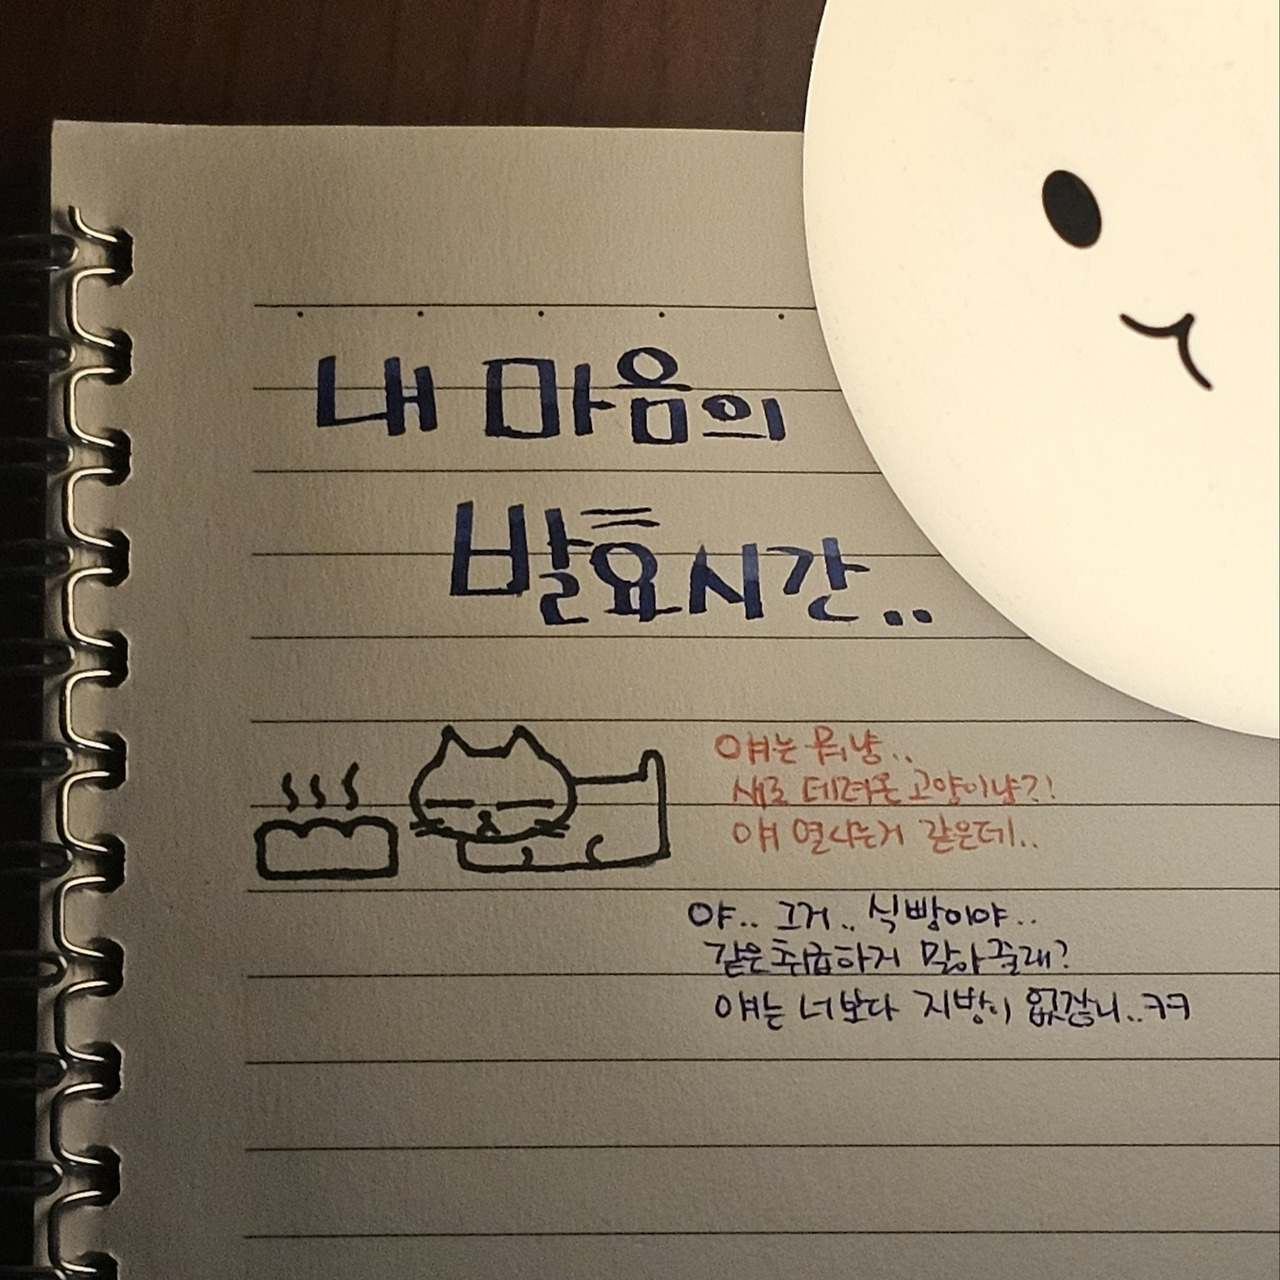 내 마음의
발효시간..
얘는 뭐냥..
새로 데려온 고양이냥?!
얘 열나는거 같은데..
야.. 그거.. 식빵이야..
같은취급하지 말아줄래?
얘는 너보다 지방이 없잖니..ㅋㅋ